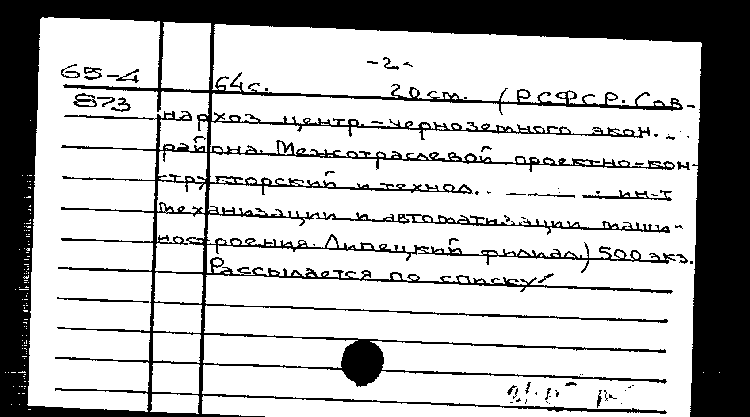 -2-
65-4
873
64с. 20 см. (РСФСР. Сов-
нархоз центр.-черноземного экон.
района. Межотраслевой проектно-кон-
структорский и технол. ин-т
механизации и автоматизации маши-
ностроения. Липецкий филиал.) 500 экз.
Рассылается по списку